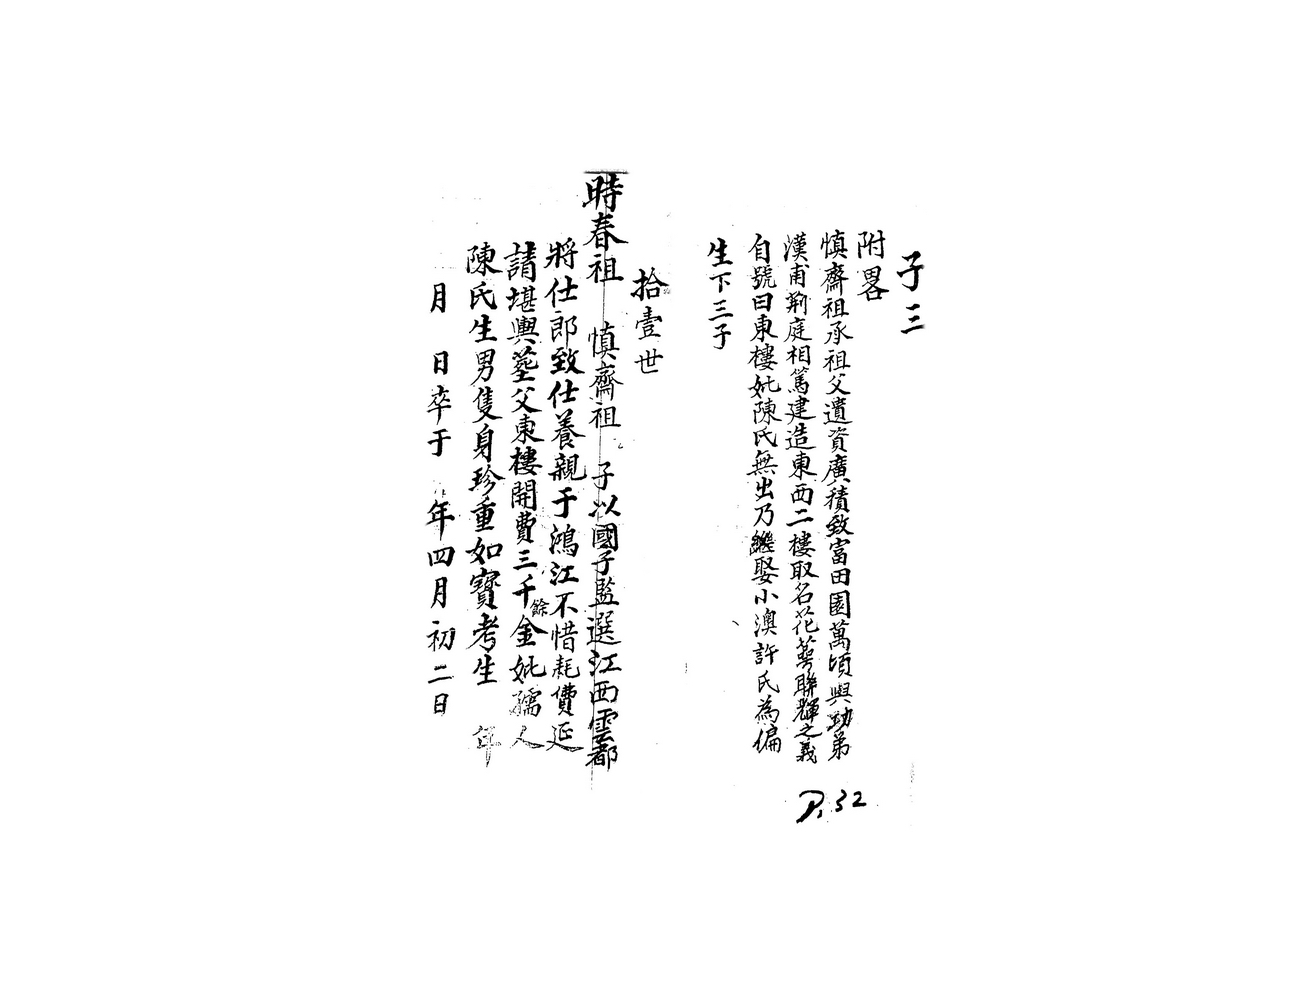 子三
附畧
慎齋祖承祖父遺資廣積致富田園萬頃與幼弟
漢甫荊庭相篤建造東西二樓取名花萼聯輝之義
自號曰東樓妣陳氏無出乃繼娶小澳許氏為偏
生下三子
拾壹世
時春祖 慎齋祖 子以國子監選江西雲都
將仕郎致仕養親于鴻江不惜耗費延
請堪輿塟父東樓開費三千餘金妣孺人
陳氏生男隻身珍重如寶考生 年
月 日卒于 年四月初二日
P. 32